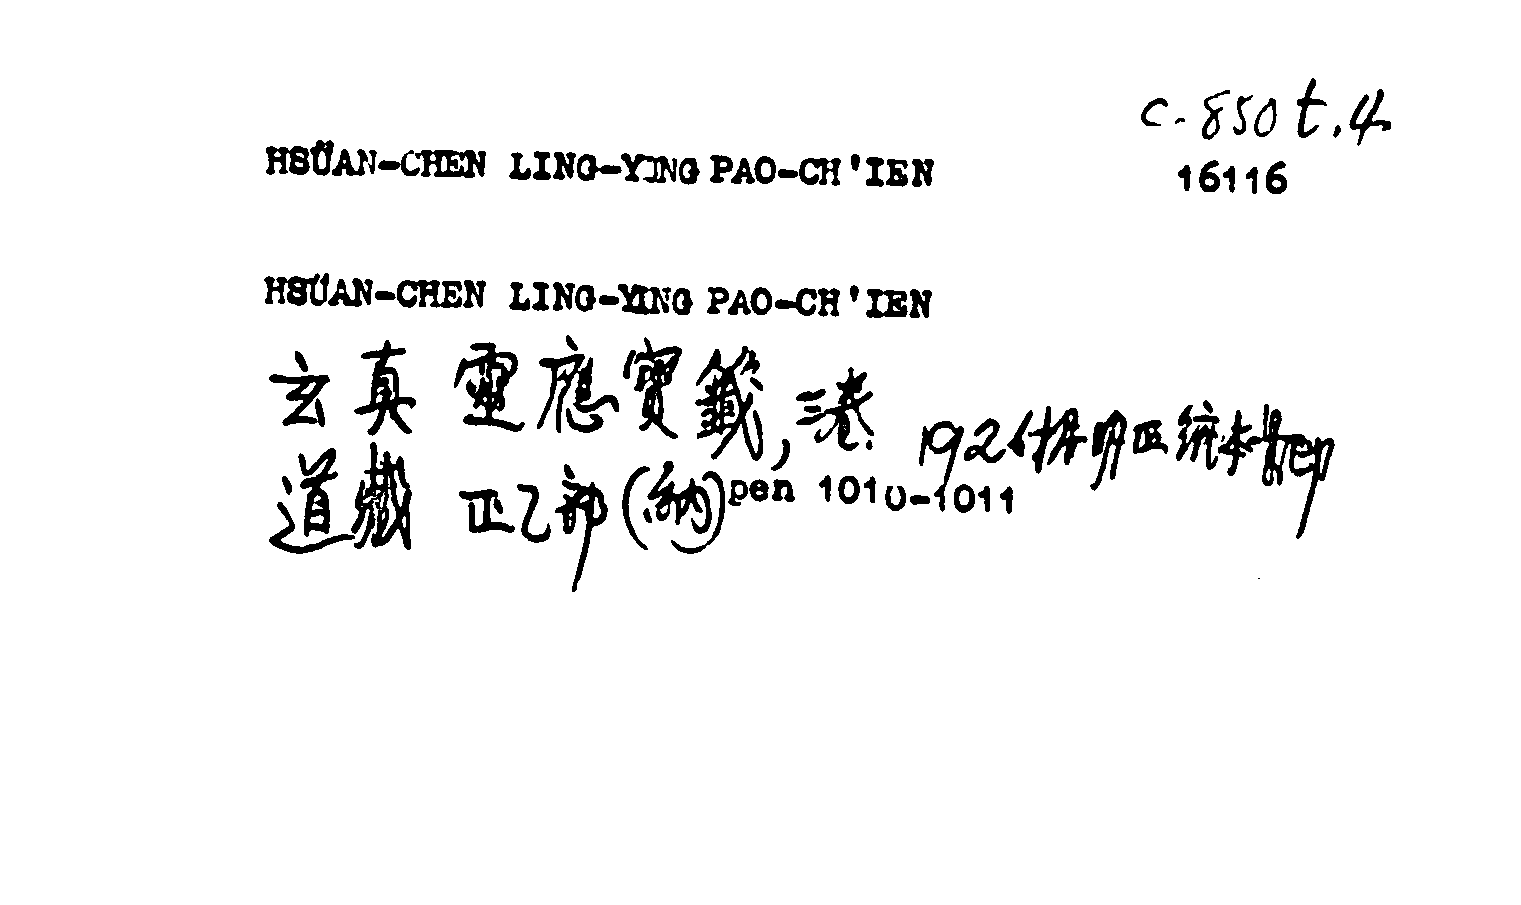 c. 850 t.4
HSÜAN-CHEN LING-YING PAO-CH'IEN 16116
HSÜAN-CHEN LING-YING PAO-CH'IEN
玄真靈應寶籤, 三卷. 192 明正統本景印
道藏 正乙部 (納) pen 1010-1011